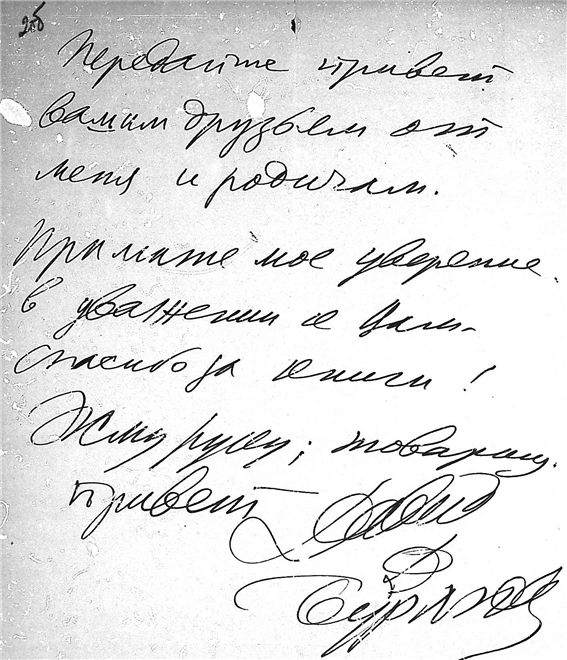 2об
Передайте привет
вашим друзьям от
меня и родичам.
Примите мое уверение
в уважении к Вам.
спасибо за книги!
Жму руку; товарищ.
привет Давид
Бурлюк